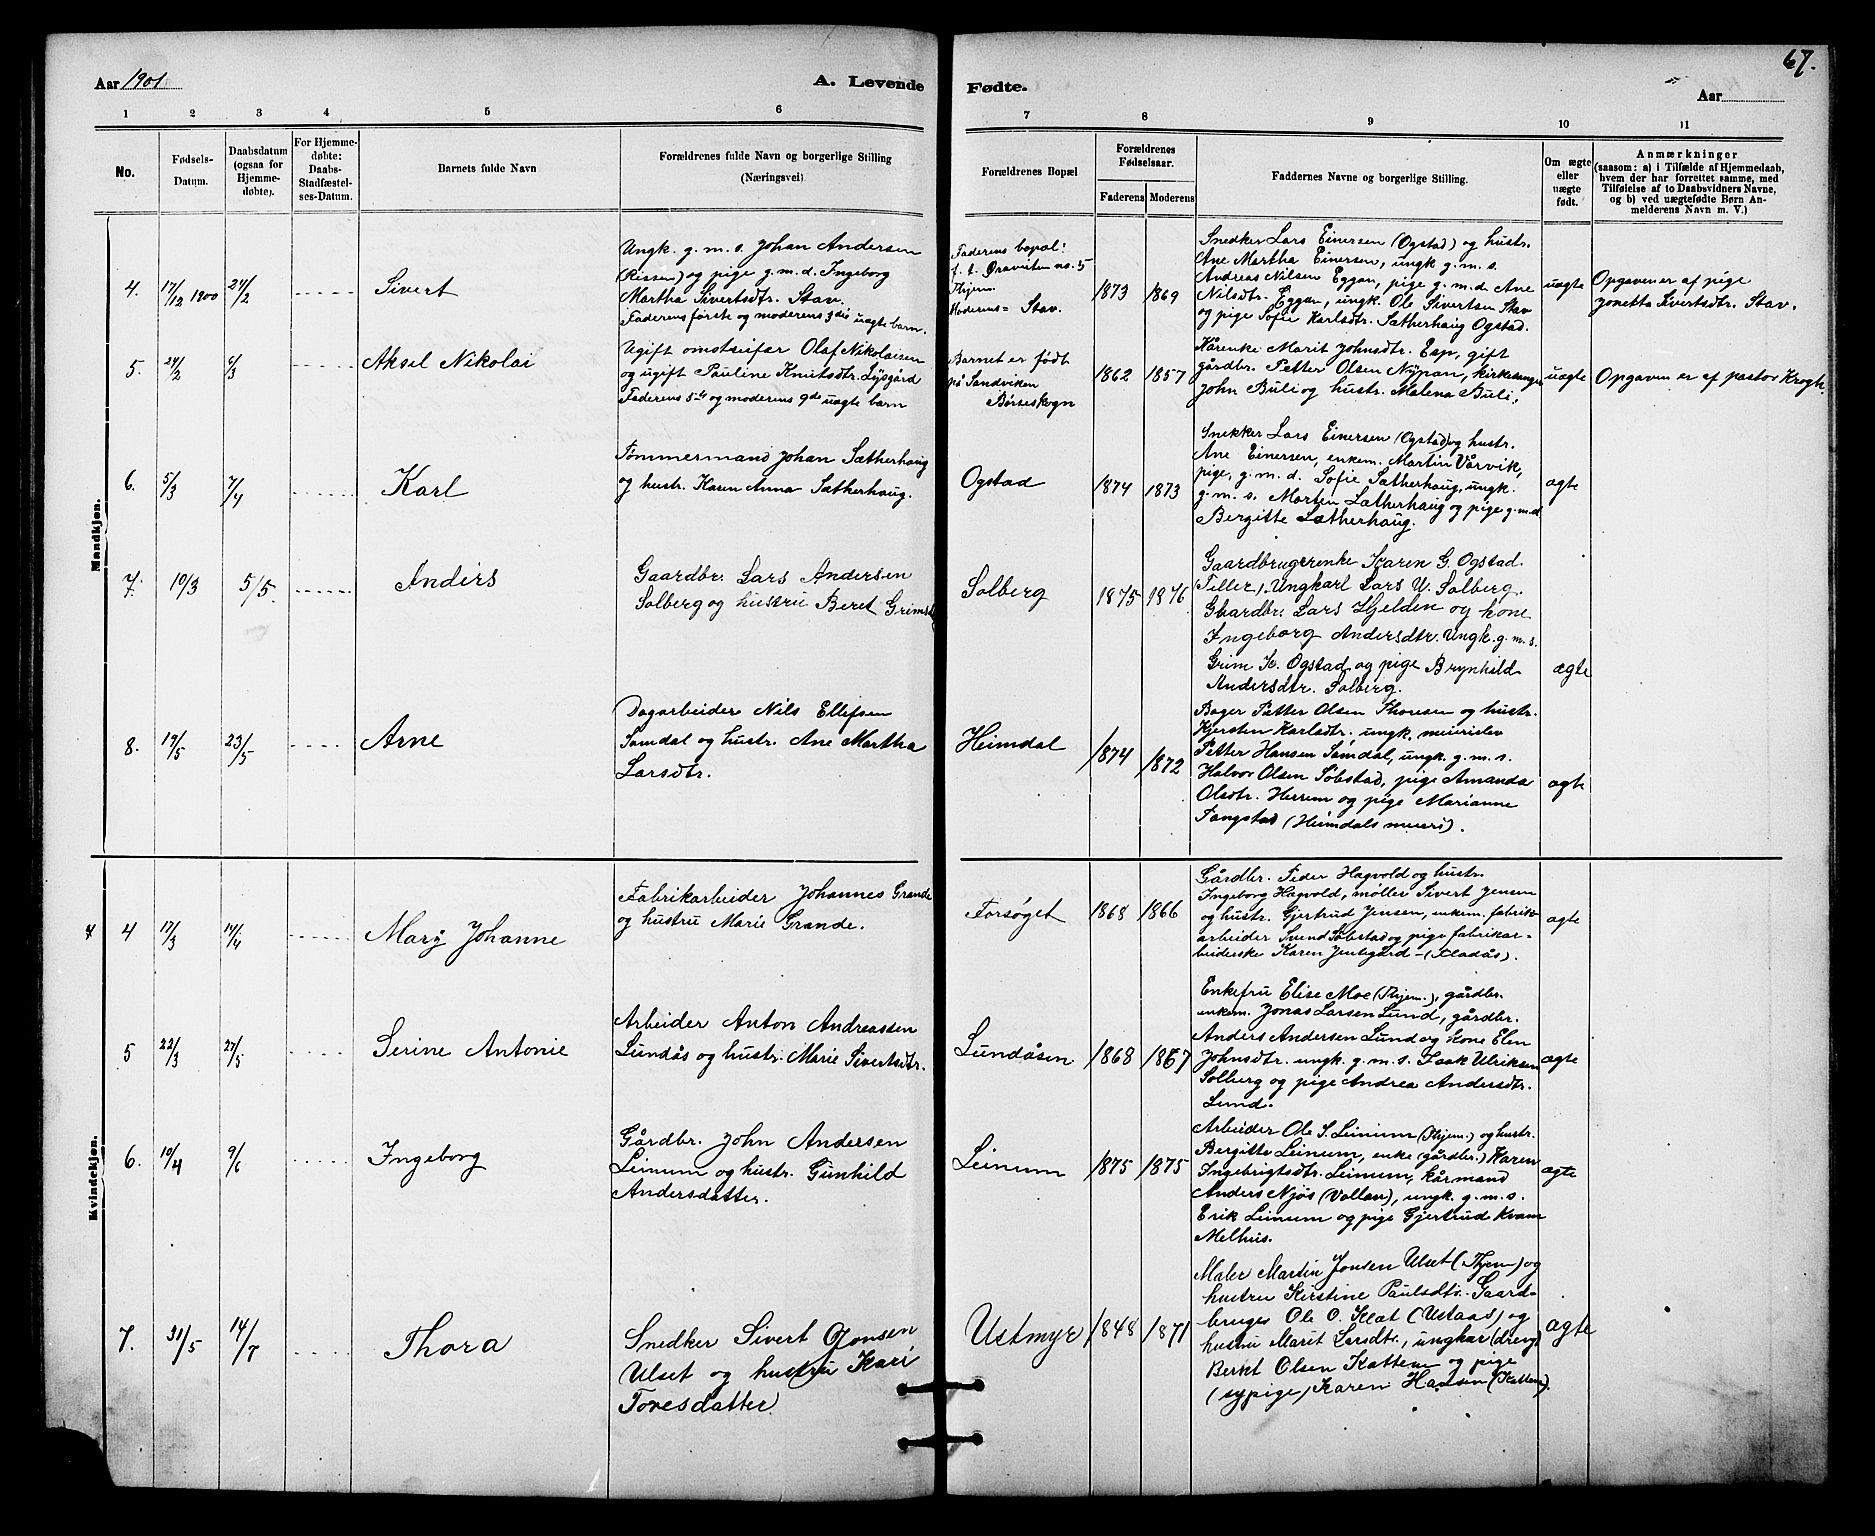 Aar 1901
A. Levende
Fødte.
Aar
67.
1 2 3 4 5 6 7 8 9 10 11
No.
Fødsels-
Datum.
Daabsdatum
(ogsaa for
Hjemme-
døbte).
For Hjemme-
døbte:
Daabs-
Stadfæstel-
ses-Datum.
Barnets fulde Navn
Forældrenes fulde Navn og borgerlige Stilling
(Næringsvei).
Forældrenes Bopæl
Forældrenes
Fødselsaar.
Faderens Moderens
Faddernes Navne og borgerlige Stilling.
Om ægte
eller
uægte
født.
Anmærkninger
(saasom: a) i Tilfælde af Hjemmedaab,
hvem der har forrettet samme, med
Tilføielse af to Daabsvidners Navne,
og b) ved uægtefødte Børn An-
melderens Navn m. V.)
Mandkjøn.
4. 17/12 1900 24/2 Sivert
Ungk. g. m. s. Johan Andersen
(Rissen) og pige g. m. d. Ingeborg
Martha Sivertsdtr. Stav.
Faderens første og moderens 3die uægte barn.
Faderens bopæl:
f. t. Draviten no. 5
Thjem.
Moderens = Stav.
1873 1869
Snedker Lars Einersen (Ogstad) og hustr.
Ane Martha Einersen, ungk g. m. s.
Andreas Nilsen Eggan, pige g. m. d Ane
Nilsdtr. Eggan, ungk. Ole Sivertsen Stav
og pige Sofie Karlsdtr. Sætherhaug Ogstad.
uægte
Opgaven er af pige
Jonetta Sivertsdtr. Stav.
5. 24/2 6/3 Aksel Nikolai
Ugift omstreifer Olaf Nikolaisen
og ugift Pauline Knutsdtr. Lysgård
Faderens 5te og moderens 9de uægte barn
Barnet er født
på Sandviken
Børseskogn
1862 1857
Kårenke Marit Johnsdtr. Esp, gift
gårdbr. Petter Olsen Nypan, kirkesanger
John Buli og hustr. Malena Buli.
uægte
Opgaven er af pastor Krogh.
6. 5/3 7/4 Karl
Tømmermand Johan Sætherhaug
og hustr. Karen Anna Sætherhaug.
Ogstad
1874 1873
Snekker Lars Einersen (Ogstad) og hustr.
Ane Einersen, enkem. Martin Vårvik,
pige, g. m. d. Sofie Sætherhaug, ungk.
g. m. s. Morten Sætherhaug og pige g. m. d
Bergitte Sætherhaug.
ægte
7. 10/3 5/5. Anders
Gaardbr. Lars Andersen
Solberg og hustru Beret Grimsd
Solberg
1875 1876
Gaardbrugerenke Karen G. Ogstad
(Tiller), Ungkarl Lars U. Solberg.
Gaardbr. Lars Hjelden og kone
Ingeborg Andersdtr. Ungk. g. m. s.
Grim K. Ogstad og pige Brynhild
Andersdtr. Solberg.
ægte
8. 19/5 23/5 Arne
Dagarbeider Nils Ellefsen
Samdal og hustr. Ane Martha
Larsdtr.
Heimdal
1874 1872
Bager Petter Olsen Thonsen og hustr.
Kjersten Karlsdtr. ungk. meierielev
Petter Hansen Sømdal, ungk. g. m. s.
Halvor Olsen Søbstad, pige Amanda
Olsdtr. Herrem og pige Marianne
Fangstad (Heimdals meieri).
ægte
Kvindekjøn.
4 17/3 14/4 Mary Johanne
Fabrikarbeider Johannes Grande
og hustru Marie Grande.
Forsøget
1868 1866
Gårdbr. Peder Hagvold og hustr.
Ingeborg Hagvold, møller Sivert Jensen
og hustr. Gjertrud Jensen, enkem. fabrik-
arbeider Svend Søbstad og pige fabrikar-
beiderske Karen - (Fladås).
ægte
5 22/3 27/5 Serine Antonie
Arbeider Anton Andreassen
Lundås og hustr. Marie Sivertsdtr.
Lundåsen
1868 1867
Enkefru Elise Moe (Thjem.), gårdbr.
enkem. Jonas Larsen Lund, gårdbr.
Anders Andersen Lund og kone Elen
Johnsdtr. ungk. g. m. s. Isak Ulriksen
Solberg og pige Andrea Andersdtr.
Lund.
ægte
6. 10/4 9/6 Ingeborg
Gårdbr. John Andersen
Leinum og hustr. Gunhild
Andersdatter.
Leinum
1875 1875
Arbeider Ole S. Leinum (Thjem.) og hustr.
Bergitte Leinum, enke (gårdbr.) Karen
Ingebrigtsdtr. Leinum, kårmand
Anders Njøs (Vollan), ungk. g. m. s.
Erik Leinum og pige Gjertrud Kvam
Melhus.
ægte
7. 31/5 14/7 Thora
Snedker Sivert Jonsen
Ulset og hustru Kari
Toresdatter
Ustmyr
1848 1871
Maler Martin Jonsen Ulset (Thjem) og
hustru Kirstine Paulsdtr. Gaard-
bruger Ole O. Klæt (Ustaas) og
hustru Marit Larsdtr., ungkar (dreng)
Berkt Olsen Kattem og pige
(sypige) Karen Hansen (Kattem).
ægte